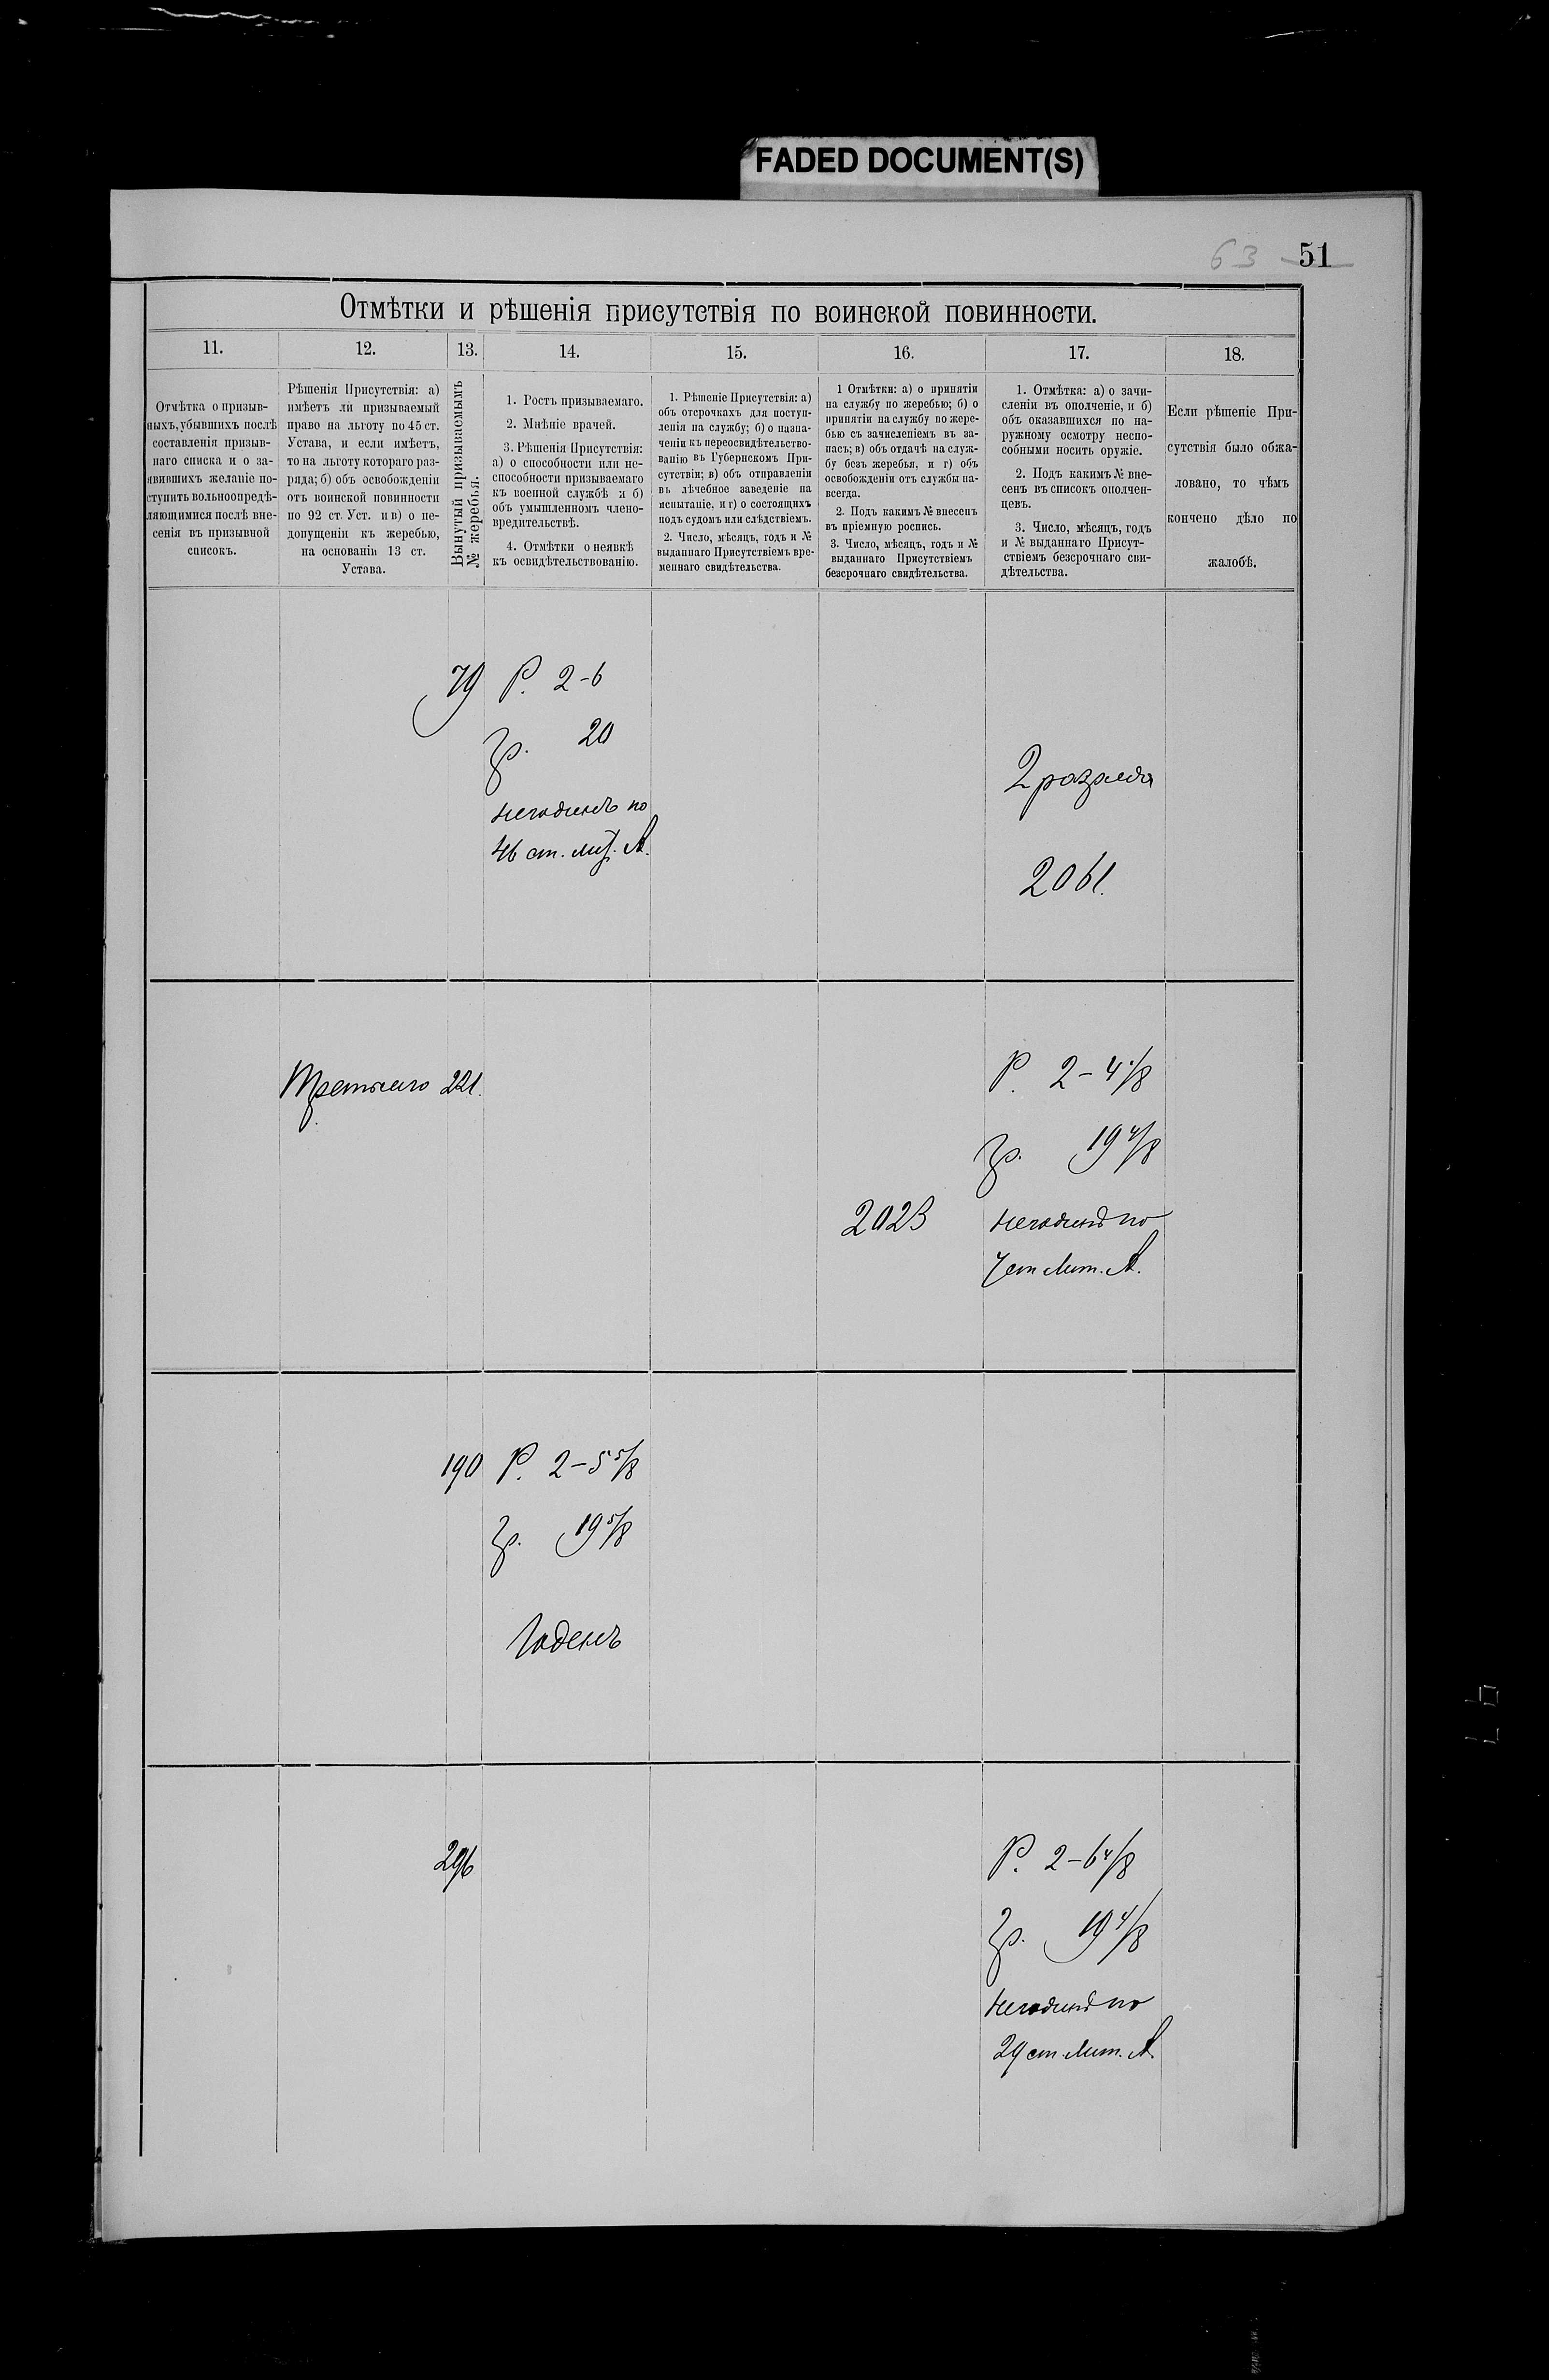 FADED DOCUMENT(S)
63 51
Отмѣтки и рѣшенія присутствія по воинской повинности.
11. 12. 13. 14. 15. 16. 17. 18.
Отмѣтка о призыв-
ныхъ, убывшихъ послѣ
составленія призыв-
наго списка и о за-
явившихъ желаніе по-
ступить вольноопредѣ-
ляющимися послѣ вне-
сенія въ призывной
списокъ.
Рѣшенія Присутствія: а)
имѣетъ ли призываемый
право на льготу по 45 ст.
Устава, и если имѣетъ,
то на льготу котораго раз-
ряда; б) объ освобожденіи
отъ воинской повинности
по 92 ст. Уст. и в) о не-
допущеніи къ жеребью,
на основаніи 13 ст.
Устава.
Вынутый призываемымъ
№ жеребья.
1. Ростъ призываемаго.
2. Мнѣніе врачей.
3. Рѣшенія Присутствія:
а) о способности или не-
способности призываемаго
къ военной службѣ и б)
объ умышленномъ члено-
вредительствѣ.
4. Отмѣтки о неявкѣ
къ освидѣтельствованію.
1. Рѣшеніе Присутствія: а)
объ отсрочкахъ для поступ-
ленія на службу; б) о назна-
ченіи къ переосвидѣтельство-
ванію въ Губернскомъ При-
сутствіи; в) объ отправленіи
въ лѣчебное заведеніе на
испытаніе, и г) о состоящихъ
подъ судомъ или слѣдствіемъ.
2. Число, мѣсяцъ, годъ и №
выданнаго Присутствіемъ вре-
меннаго свидѣтельства.
1 Отмѣтки: а) о принятіи
на службу по жеребью; б) о
принятіи на службу по жере-
бью съ зачисленіемъ въ за-
пасъ; в) объ отдачѣ на служ-
бу безъ жеребья, и г) объ
освобожденіи отъ службы на-
всегда.
2. Подъ какимъ № внесенъ
въ пріемную роспись.
3. Число, мѣсяцъ, годъ и №
выданнаго Присутствіемъ
безсрочнаго свидѣтельства.
1. Отмѣтка: а) о зачи-
сленіи въ ополченіе, и б)
объ оказавшихся по на-
ружному осмотру неспо-
собными носить оружіе.
2. Подъ какимъ № вне-
сенъ въ списокъ ополчен-
цевъ.
3. Число, мѣсяцъ, годъ
и № выданнаго Присут-
ствіемъ безсрочнаго сви-
дѣтельства.
Если рѣшеніе При-
сутствія было обжа-
ловано, то чѣмъ
кончено дѣло по
жалобѣ.
79 Р. 2-6
Гр. 20
негоденъ по
46 ст. лит. А.
2 разряда
2061.
Третьяго 221.
2023
Р. 2-4 1/8
Гр. 19 4/8
негоденъ по
7 ст Лит. А.
190 Р. 2-5 5/8
Гр. 19 5/8
Годенъ
296
Р. 2-6 4/8
Гр. 19 4/8
негоденъ по
29 ст. Лит. А.